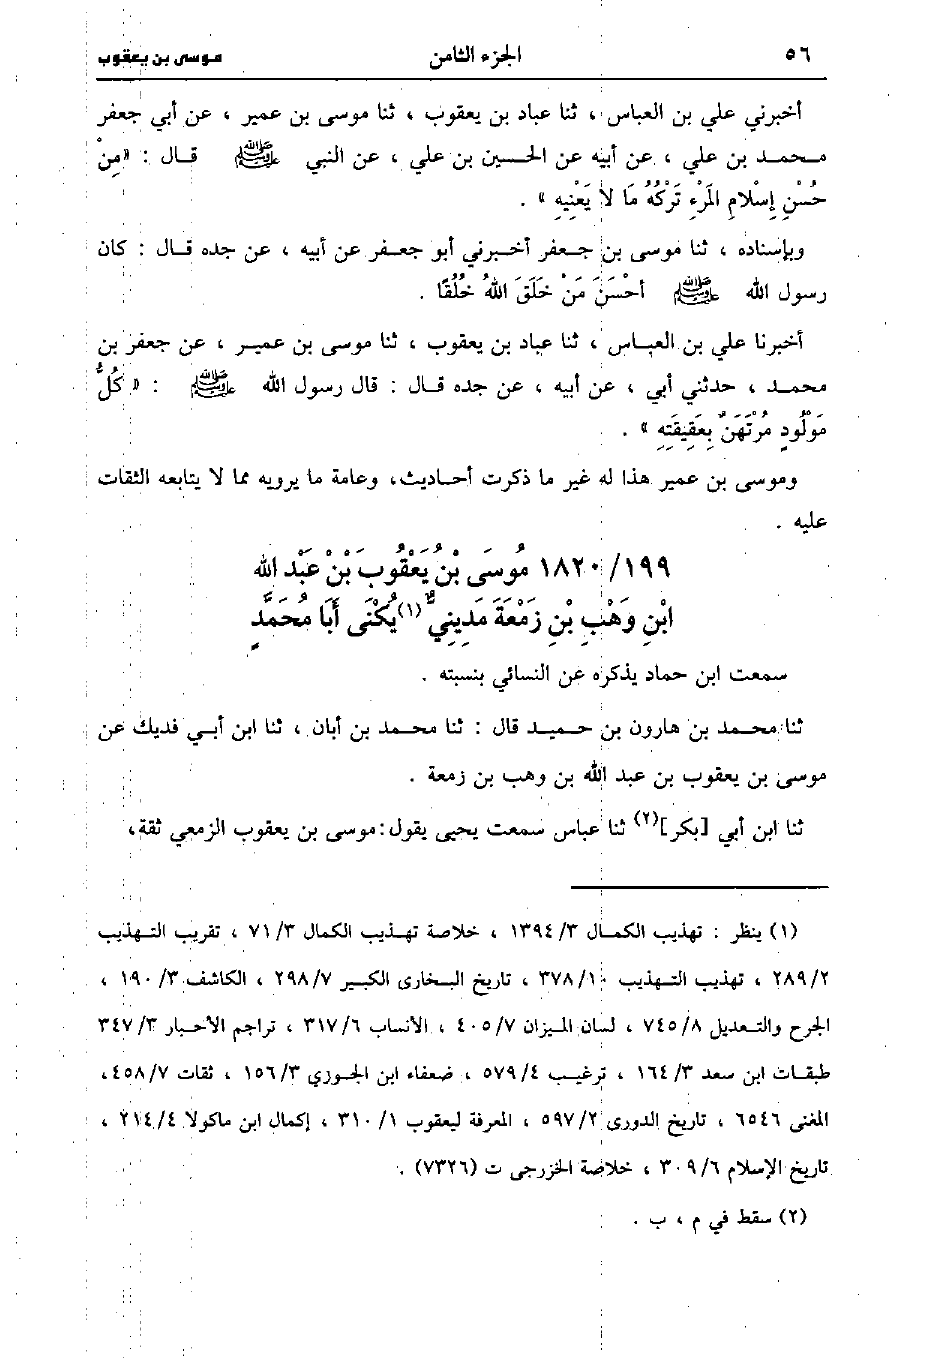 ٥٦ الجزء الثامن موسى بن يعقوب
أخبرني علي بن العباس ، ثنا عباد بن يعقوب ، ثنا موسى بن عمير ، عن أبي جعفر
محمد بن علي ، عن أبيه عن الحسين بن علي ، عن النبي ﷺ قال : «مِنْ
حُسْنِ إِسْلَامِ المَرْءِ تَرْكُهُ مَا لَا يَعْنِيهِ » .
وبإسناده ، ثنا موسى بن جعفر أخبرني أبو جعفر عن أبيه ، عن جده قال : كان
رسول الله ﷺ أحْسَنَ مَنْ خَلَقَ اللهُ خُلُقًا .
أخبرنا علي بن العباس ، ثنا عباد بن يعقوب ، ثنا موسى بن عمير ، عن جعفر بن
محمد ، حدثني أبي ، عن أبيه ، عن جده قال : قال رسول الله ﷺ : « كُلُّ
مَوْلُودٍ مُرْتَهَنٌ بِعَقِيقَتِهِ » .
وموسى بن عمير هذا له غير ما ذكرت أحاديث، وعامة ما يرويه مما لا يتابعه الثقات
عليه .
١٨٢٠/١٩٩ مُوسَى بْنُ يَعْقُوبَ بْنِ عَبْدِ الله
ابْنِ وَهْبِ بْنِ زَمْعَةَ مَدِينِيٌّ(١) يُكْنَى أَبَا مُحَمَّدٍ
سمعت ابن حماد يذكره عن النسائي بنسبته .
ثنا محمد بن هارون بن حميد قال : ثنا محمد بن أبان ، ثنا ابن أبي فديك عن
موسى بن يعقوب بن عبد الله بن وهب بن زمعة .
ثنا ابن أبي [بكر](٢) ثنا عباس سمعت يحيى يقول: موسى بن يعقوب الزمعي ثقة،
(١) ينظر : تهذيب الكمال ١٣٩٤/٣ ، خلاصة تهذيب الكمال ٧١/٣ ، تقريب التهذيب
٢٨٩/٢ ، تهذيب التهذيب ٣٧٨/١٠ ، تاريخ البخارى الكبير ٢٩٨/٧ ، الكاشف ١٩٠/٣ ،
الجرح والتعديل ٧٤٥/٨ ، لسان الميزان ٤٠٥/٧ ، الأنساب ٣١٧/٦ ، تراجم الأحبار ٣٤٧/٣
طبقات ابن سعد ١٦٤/٣ ، ترغيب ٥٧٩/٤ ، ضعفاء ابن الجوزي ١٥٦/٣ ، ثقات ٤٥٨/٧،
المغنى ٦٥٤٦ ، تاريخ الدورى ٥٩٧/٢ ، المعرفة ليعقوب ٣١٠/١ ، إكمال ابن ماكولا ٢١٤/٤ ،
تاريخ الإسلام ٣٠٩/٦ ، خلاصة الخزرجى ت (٧٣٢٦) .
(٢) سقط في م ، ب .